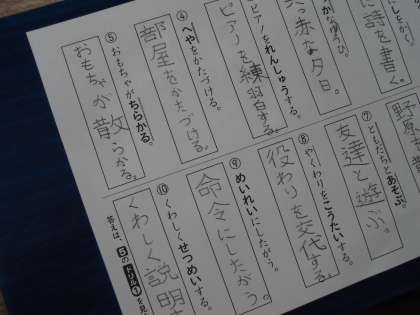 詩を書く。
真っ赤な夕日。
ピアノをれんしゅうする。
ピアノを練習する。
④
へやをかたづける。
部屋をかたづける。
⑤
おもちゃがちらかる。
おもちゃが散らかる。
⑦
ともだちとあそぶ。
友達と遊ぶ。
⑧
やくわりをこうたいする。
役わりを交代する。
⑨
めいれいにしたがう。
命令にしたがう。
⑩
くわしくせつめいする。
くわしく説明
答えは、5のドリル①を見